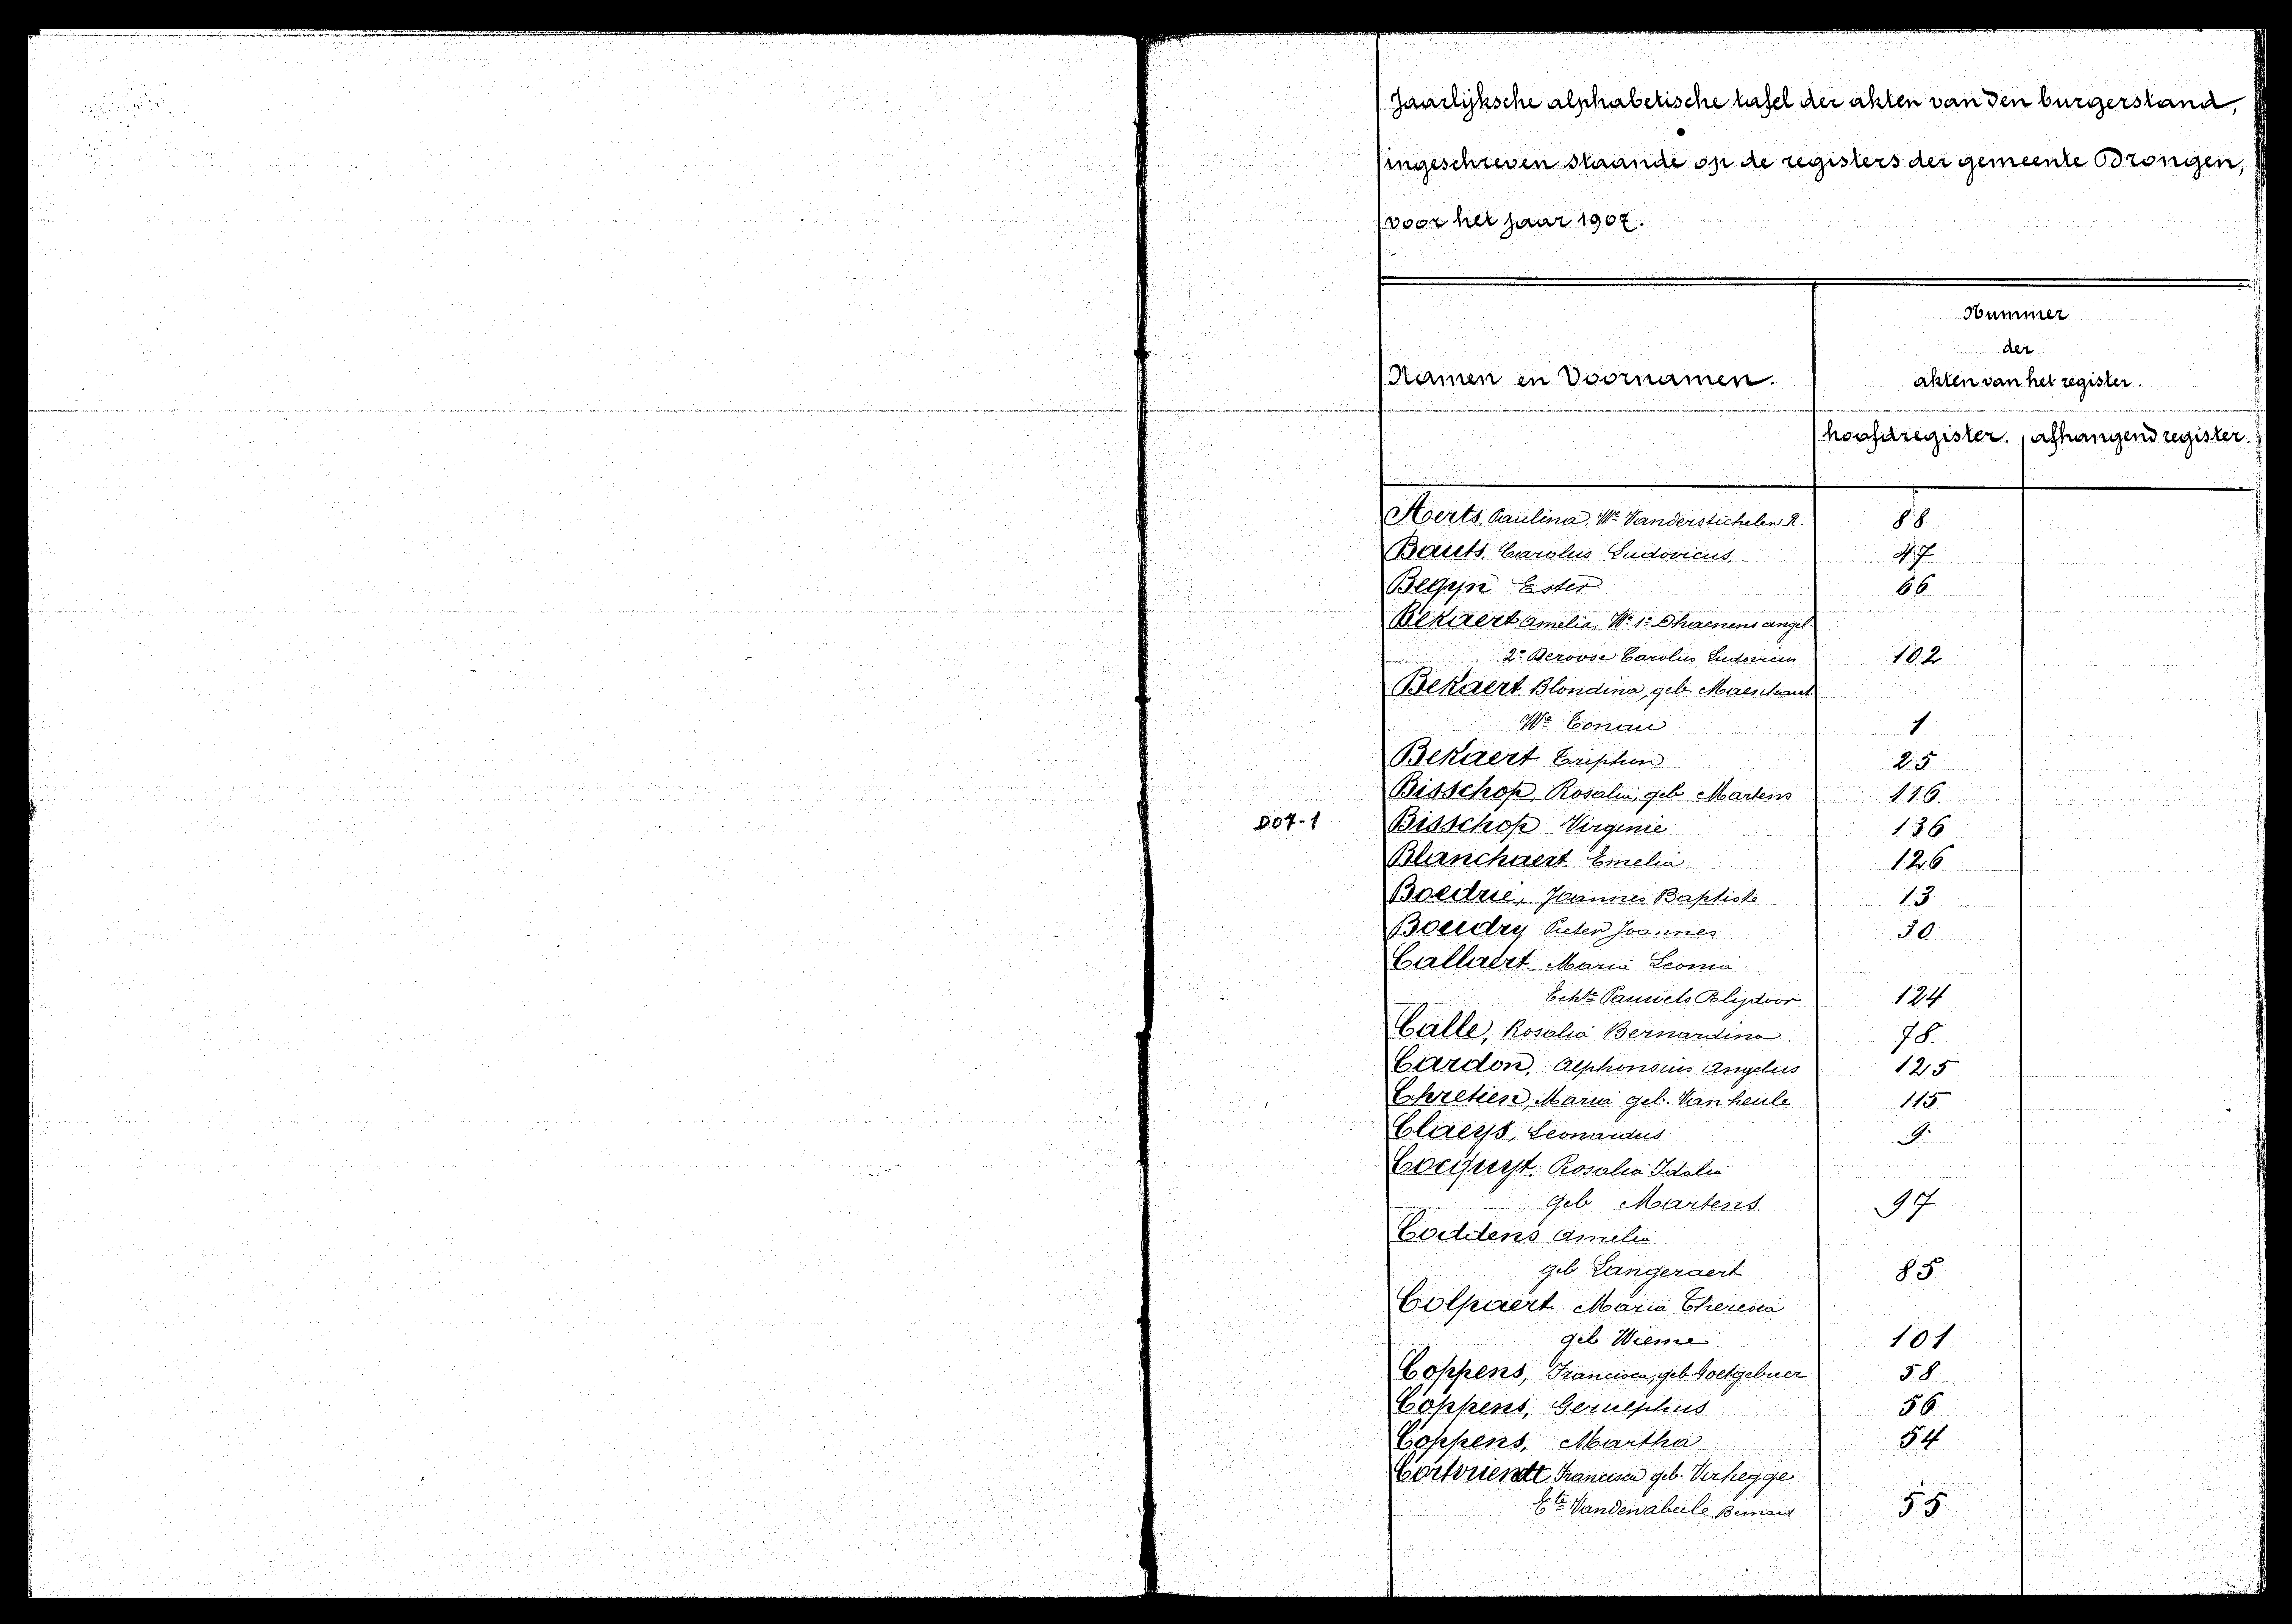 Jaarlijksche alphabetische tafel der akten van den burgerstand,
ingeschreven staande op de registers der gemeente Drongen,
voor het jaar 1907.
Namen en Voornamen.
Nummer
der
akten van het register.
hoofdregister. afhangend register.
Aerts, Paulina, We Vanderstichelen R. 88
Bauts, Carolus Ludovicus, 47
Begyn Ester 66
Bekaert Amelia We 1e Dhaenens angel.
2e Deroose Carolus Ludovicus 102
Bekaert Blondina, geb.
We Conau 1
Bekaert Triphon 25
Bisschop, Rosalia, geb Martens 116.
D07-1
Bisschop Virginie 136
Blanchaert Emelia 126
Boedrie, Joannes Baptiste 13
Boudry Pieter Joannes 30
Callaert Maria Leonia
Echte Pauwels Polydoor 124
Calle, Rosalia Bernardina 78.
Cardon, Alphonsius Angelus 125
Chretien, Maria geb. Vanheule 115
Claeys, Leonardus 9.
Cocquyt. Rosalia Idalia
geb Martens. 97
Coddens Amelia
geb Langeraert 85
Colpaert Maria Theresia
geb Wieme 101
Coppens, Francisca, geb Goetgebuer 58
Coppens, Gerulphus 56
Coppens, Martha 54
Cortvriendt Francisca geb. Verhegge
Ete Vandenabeele Bernard 55